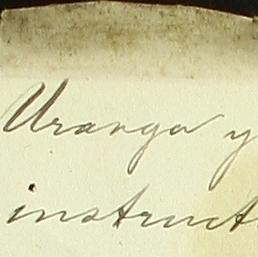 Uranga y
instruct